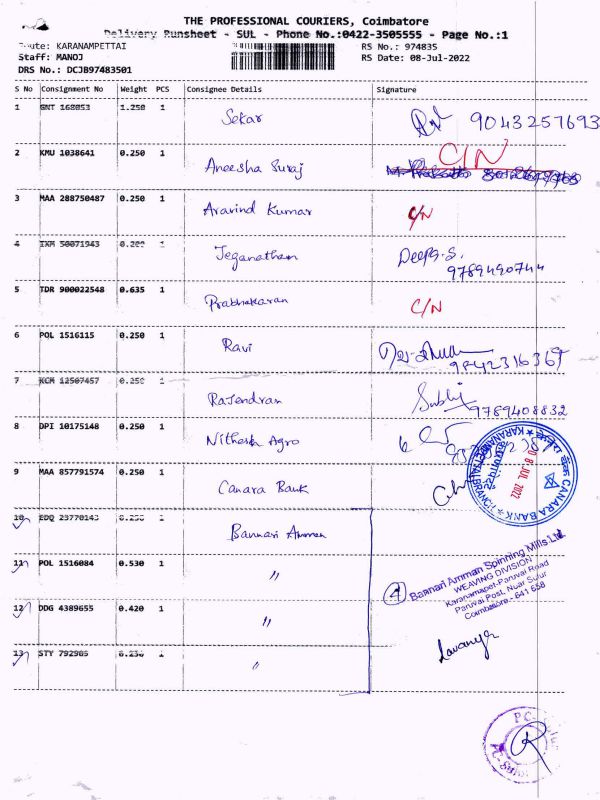 THE PROFESSIONAL COURIERS, Coimbatore
Delivery Runsheet - SUL - Phone No.:0422-3505555 - Page No.:1
Route: KARANAMPETTAI RS No.: 974835
Staff: MANOJ RS Date: 08-Jul-2022
DRS No.: DCJB97483501
S No Consignment No Weight PCS Consignee Details Signature
1 GNT 168053 1.250 1 Sekar 9043257693
2 KMU 1038641 0.250 1 Aneesha Suraj C/N
3 MAA 288750487 0.250 1 Aravind Kumar C/N
4 50071943 1 Jeganathan Deepa.S,
9789490744
5 TDR 900022548 0.635 1 Prabhakaran C/N
6 POL 1516115 0.250 1 Ravi
9842316367
7 KCM 12507457 0.250 1 Rajendran
9789408832
8 DPI 10175148 0.250 1 Nithesh Agro
9 MAA 857791574 0.250 1 Canara Bank
CANARA BANK
KARANAMPETTAI BRANCH
08 JUL 2022
10 EDQ 23770143 1 Bannari Amman
11 POL 1516084 0.530 1 "
12 DDG 4389655 0.420 1 "
13 STY 792905 1 "
4
Bannari Amman Spinning Mills Ltd
WEAVING DIVISION
Karanampet-Paruvai Road
Paruvai Post, Near Sulur
Coimbatore - 641 658
Lavanya
PC
R